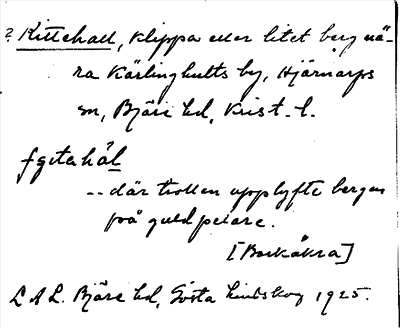 ? Kittehall, klippa eller litet berg nä-
ra Kärlinghults by, Hjärnarps
sn, Bjäre hd, Krist. l.
-- där trollen upplyfte bergen
på guldpelare.
[Barkåkra]
L A L. Bjäre hd, Gösta Lindskog 1925.